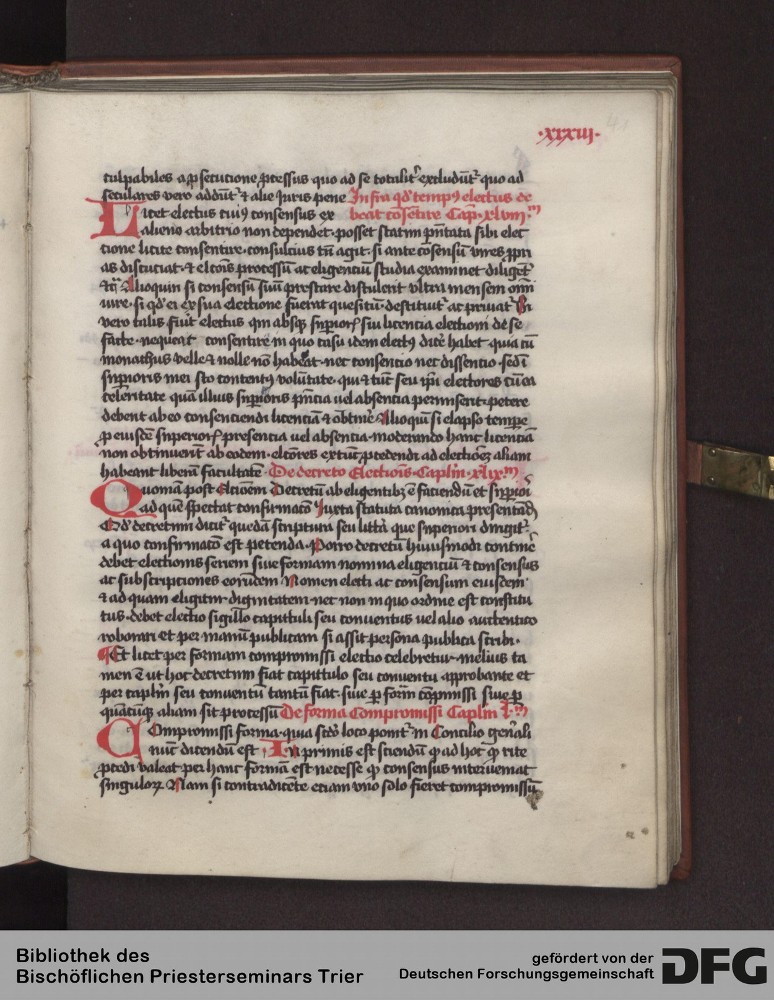 ·xxxiii·
culpabiles a ꝓsecucione ꝓcessus quo ad se totalit᷑ excludūt᷑ quo ad
seculares vero addūt᷑ ⁊ alie Iuris pene Infra qd᷑ tempꝰ electus de
Licet electus cuiꝰ consensus ex beat cōsētire Cap· xlviij·m
alieno arbitrio non dependet· posset statim pn̄tata sibi elec
cione licite consentire· consulcius tn̄ agit· si ante cōsensū vires ꝓpri
as discuciat· ⁊ elcōis processū ac eligenciū studia examinet diligēt᷑
Alioquin si consensū suū prestare distulerit vltra mensem om̄i
iure· si qd᷑ ei ex sua electione fuerat quesitū· destituit᷑ ac priuat᷑ Si
vero talis fu᷑it electus qui absqꝫ suꝑiorꝭ sui licencia electioni de se
facte· nequeat consentire in quo casu idem electꝰ dic̄e habet· quia cū
monachus velle ⁊ nolle nō habeat· nec consencio nec dissencio· sed ī
suꝑioris mei sto contentꝰ volūtate· qui ⁊ tūc seu ip̄i electores cū ea
celeritate quā illius suꝑioris pn̄cia vel absencia permiserit· petere
debent ab eo consenciendi licenciā ⁊ obtine᷑ Alioqui si elapso tempe
ꝓ eiusdē superiorꝭ presencia vel absencia· moderando hanc licenciā
non obtinuerit ab eodem· elcōres extūc ꝓcedendi ad electiōeꝫ aliam
habeant liberā facultatē· De decreto Electiōis· Caplm̄· xlix·m
Quoniā post elcioēm Decretū ab eligentibꝫ ē faciendū et suꝑiori
ad quē spectat confirmacō Iuxta statuta canonica presentand᷑
Et d᷑ decretum dicit᷑ quedā scriptura seu lit̄ta que superiori dirigit᷑
a quo confirmacō est petenda· Porro decretū huiusmodi contine᷑
debet electionis seriem siue formam nomina eligenciū ⁊ consensus
ac subscripciones eorūdem Nomen electi ac consensum eiusdem·
⁊ ad quam eligitur dignitatem· nec non in quo ordine est constitu
tus· debet electio sigillo capituli seu conuentus vel alio autentico
roborari et per manū publicam si assit persona publica scribi·
¶ Et licet per formam compromissi electio celebretur· melius ta
men ē ut hoc decretum fiat capitulo seu conuentu approbante et
per caplm̄ seu conuentū tantū fiat· siue ꝑ formā cōpromissi siue ꝑ
quācūqꝫ aliam sit processū De forma Compromissi Caplm̄ L·m
Compromissi forma· quia scd̄o loco ponit᷑ in Concilio gen᷑ali
nūc dicendū est· In primis est sciendū ꝙ ad hoc ꝙ rite
ꝓcedi valeat per hanc formā est necesse ꝙ consensus interueniat
singulorꝝ Nam si contradicēte etiam vno solo fieret compromissū
Bibliothek des
Bischöflichen Priesterseminars Trier
gefördert von der
Deutschen Forschungsgemeinschaft DFG